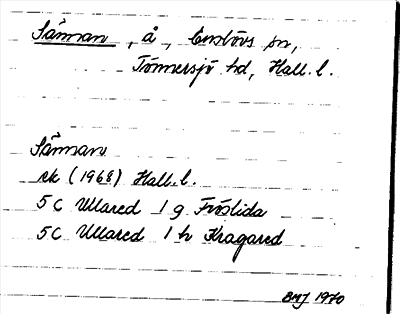 Sännan, å, Enslövs sn,
Tönnersjö hd, Hall. l.
Sännan
ek (1968) Hall. l.
5C Ullared 1 g Fröslida
5C Ullared 1 h Kragared
1970